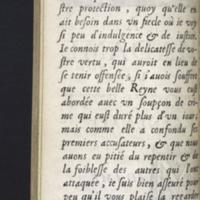 stre protection, quoy qu'elle en
ait besoin dans vn siecle où ie voy
si peu d'indulgence & de iustice.
Ie connois trop la delicatesse de vo-
stre vertu, qui auroit eu lieu de
se tenir offensée, si i'auois souffert
que cette belle Reyne vous eust
abordée auec vn soupçon de cri-
me qui eust duré plus d'vn iour;
mais comme elle a confondu ses
premiers accusateurs, & que nous
auons eu pitié du repentir & de
la foiblesse des autres qui l'ont
attaquée, ie suis bien asseuré pour
peu qu'il vous plaise la regarder